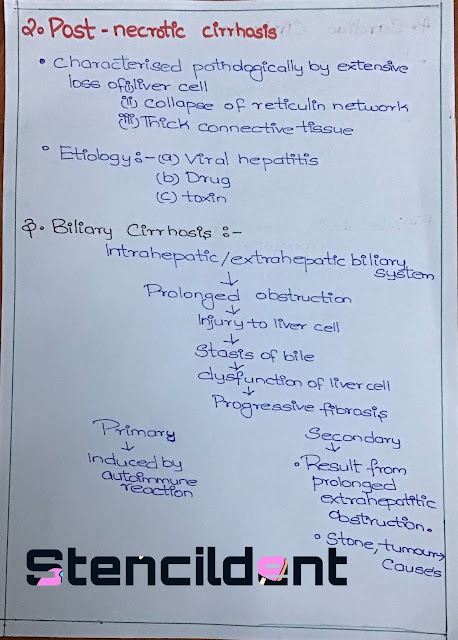 2. Post-necrotic cirrhosis
• Characterised pathologically by extensive
loss of (i) liver cell
(ii) collapse of reticulin network
(iii) Thick connective tissue
• Etiology :- (a) Viral hepatitis
(b) Drug
(c) toxin
3. Biliary Cirrhosis :-
Intrahepatic/extrahepatic biliary
system
↓
Prolonged obstruction
↓
Injury to liver cell
↓
Stasis of bile
↓
dysfunction of liver cell
↓
Progressive fibrosis
Primary
↓
Induced by
autoimmune
reaction
Secondary
↓
• Result from
prolonged
extrahepatitic
obstruction.
• Stone, tumour→
Causes
Stencildent